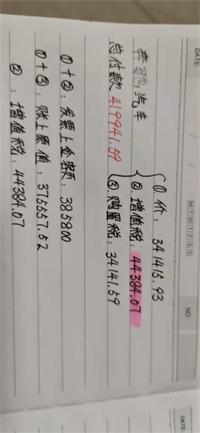 DATE
NO.
①价: 341415.93
奔驰汽车
②增值税: 44384.07
总付款 419941.59
③购置税: 34141.59
①+②: 发票上金额: 385800
①+③: 账上原值: 375557.52
②: 增值税: 44384.07
DATE